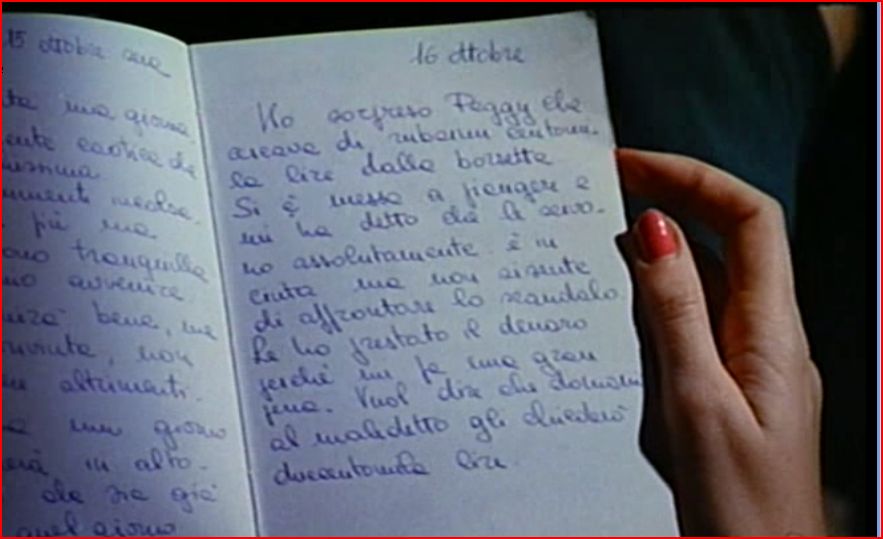 15 ottobre sera
ta una giorna
ente caotica che
issima
più una
ono tranquilla
mo avvenire
bene, me
, non
altrimenti.
un giorno
erà in alto.
che sia già
quel giorno
16 ottobre
Ho sorpreso Peggy che
cercava di rubarmi centomi-
la lire dalla borsetta
Si è messa a piangere e
mi ha detto che le servo-
no assolutamente. è in
cinta ma non si sente
di affrontare lo scandalo
Le ho prestato il denaro
perché mi fa una gran
pena. Vuol dire che domani
al maledetto gli chiederò
duecentomila lire.